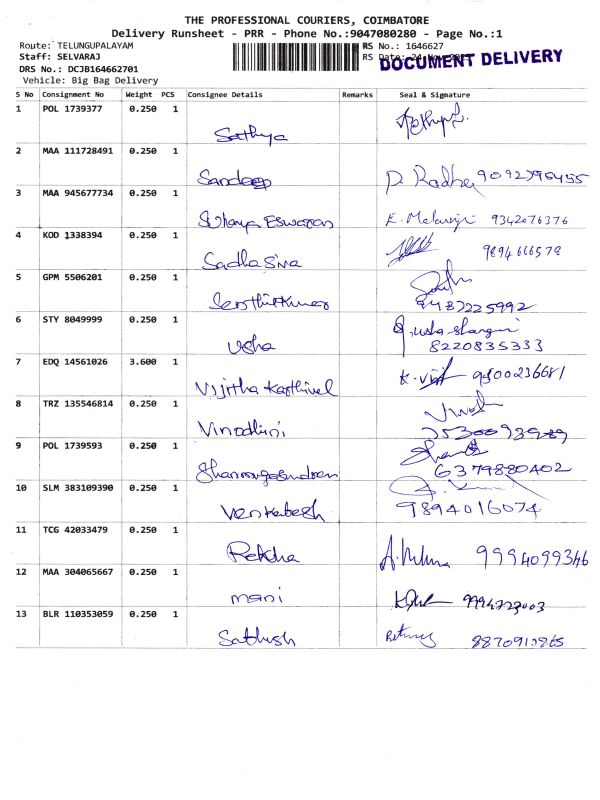 THE PROFESSIONAL COURIERS, COIMBATORE
Delivery Runsheet - PRR - Phone No.:9047080280 - Page No.:1
Route: TELUNGUPALAYAM RS No.: 1646627
Staff: SELVARAJ RS Date: DOCUMENT DELIVERY
DRS No.: DCJB164662701
Vehicle: Big Bag Delivery
S No Consignment No Weight PCS Consignee Details Remarks Seal & Signature
1 POL 1739377 0.250 1
Sathya
2 MAA 111728491 0.250 1
Sandeep
3 MAA 945677734 0.250 1
Eswaran 9342076376
4 KOD 1338394 0.250 1
Sadha Siva 9894666578
5 GPM 5506201 0.250 1
Senthilkumar 9487225992
6 STY 8049999 0.250 1
Usha 8220835333
7 EDQ 14561026 3.600 1
Vijitha Karthivel
8 TRZ 135546814 0.250 1
Vinodhini
9 POL 1739593 0.250 1
6379880402
10 SLM 383109390 0.250 1
Venkatesh 9894016074
11 TCG 42033479 0.250 1
Rekha 9994099346
12 MAA 304065667 0.250 1
mani
13 BLR 110353059 0.250 1
Sathish